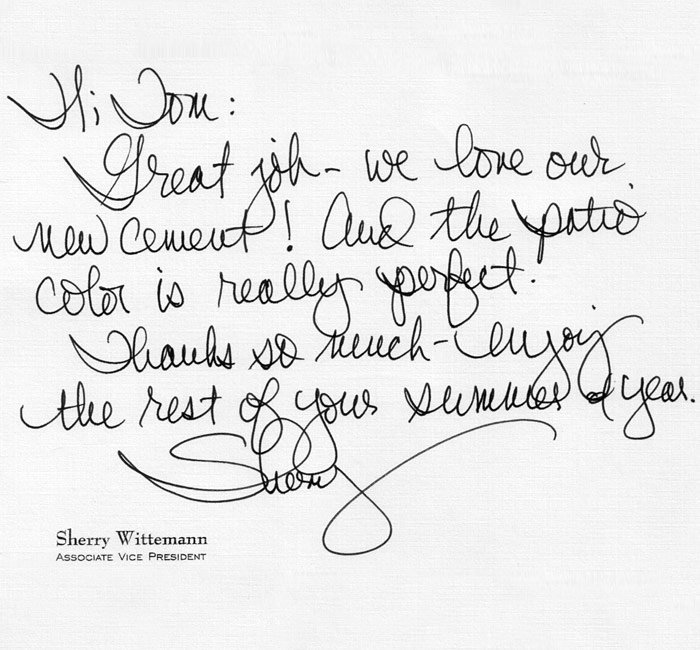 Hi Tom:
Great job - we love our
new cement! And the patio
color is really perfect.
Thanks so much - enjoy
the rest of your summer & year.
Sherry
Sherry Wittemann
ASSOCIATE VICE PRESIDENT